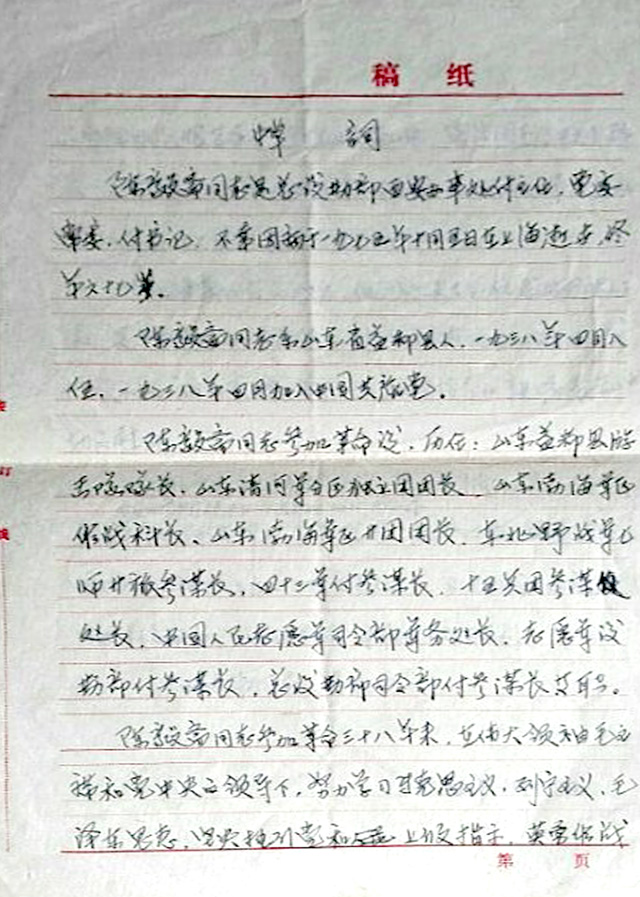 稿 纸
悼 词
同志是总后勤部西安办事处付主任，党委
常委、付书记，不幸因病于一九七五年十月五日在上海逝世，终
年六十七岁。
同志系山东省益都县人，一九三八年四月入
伍，一九三八年四月加入中国共产党。
同志参加革命后，历任：山东益都县游
击队队长、山东清河军分区独立团团长、山东渤海军区
作战科长、山东渤海军区廿团团长、东北野战军七
师廿旅参谋长、四十三军付参谋长、十五兵团参谋
处长、中国人民志愿军司令部军务处长、志愿军后
勤部付参谋长、总后勤部司令部付参谋长等职。
同志参加革命三十八年来，在伟大领袖毛主
席和党中央的领导下，努力学习马克思主义、列宁主义、毛
泽东思想，坚决执行党和上级指示，英勇作战
第 页
订
线